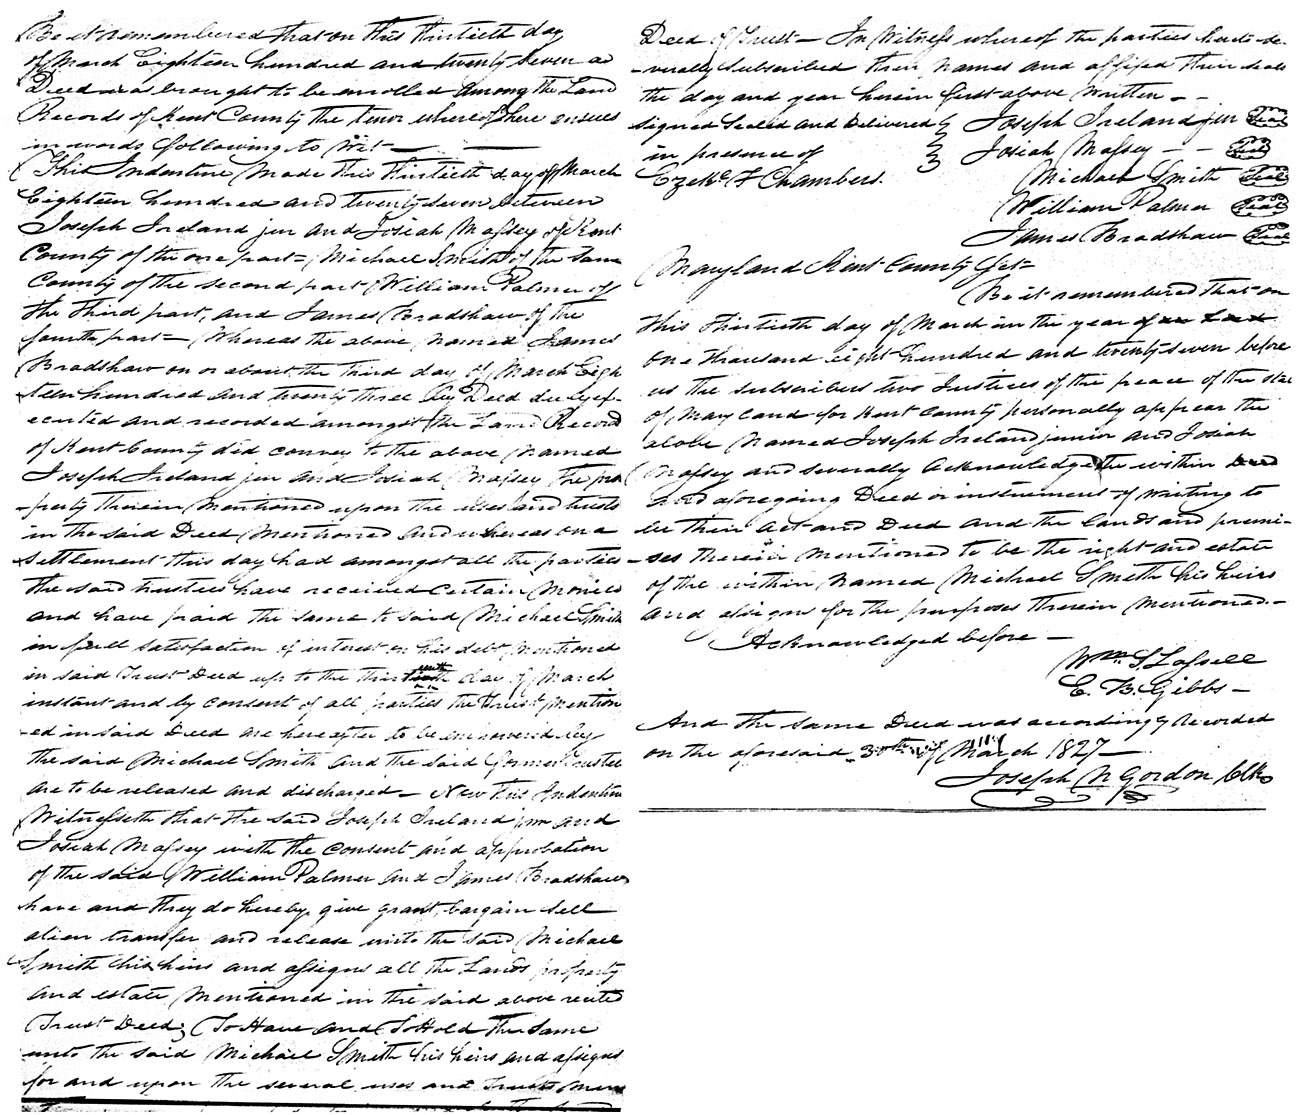 Be it remembered that on this thirtieth day
of March Eighteen hundred and twenty seven a
Deed was brought to be enrolled among the Land
Records of Kent County the tenor whereof here ensues
in words following to Wit —
This Indenture Made this thirtieth day of March
Eighteen hundred and twenty seven between
Joseph Ireland jun and Josiah Massey of Kent
County of the one part — Michael Smith of the same
County of the second part William Palmer of
the third part, and James Bradshaw of the
fourth part — Whereas the above Named James
Bradshaw on or about the third day of March Eigh
teen hundred and twenty three by Deed duly ex-
ecuted and recorded amongst the Land Record
of Kent County did convey to the above Named
Joseph Ireland jun and Josiah Massey the pro
-perty therein Mentioned upon the uses and trusts
in the said Deed Mentioned And whereas on a
settlement this day had amongst all the parties
the said trustees have received certain Monies
and have paid the same to said Michael Smith
in full satisfaction of interest on his debt, Mentioned
in said Trust Deed up to the day of March
instant and by consent of all parties the trust mention
-ed in said Deed are hereafter to be empowered by
the said Michael Smith and the said former Trustee
are to be released and discharged — Now this Indenture
Witnesseth that the said Joseph Ireland jun and
Josiah Massey with the consent and approbation
of the said William Palmer and James Bradshaw
have and they do hereby, give grant, bargain sell
alien transfer and release unto the said Michael
Smith his heirs and assigns all the Lands property
and estate Mentioned in the said above recited
Trust Deed; To Have and To Hold the same
unto the said Michael Smith his heirs and assigns
for and upon the several uses and Trusts Men
Deed of Trust — In Witness whereof the parties have se-
-verally subscribed their names and affixed their seals
the day and year herein first above Written —
Signed Sealed and Delivered Joseph Ireland jun Seal
in presence of Josiah Massey — — Seal
Ezekl F Chambers. Michael Smith Seal
William Palmer Seal
James Bradshaw Seal
Maryland Kent County Sct —
Be it remembered that on
this thirtieth day of March in the year
One thousand eight hundred and twenty seven before
us the subscribers two Justices of the peace of the state
of Maryland for Kent County personally appear the
above Named Joseph Ireland junior and Josiah
Massey and severally Acknowledge the within Deed
and aforegoing Deed or instrument of writing to
be their Act and Deed and the lands and premi-
-ses therein Mentioned to be the right and estate
of the within Named Michael Smith his heirs
and assigns for the purposes therein Mentioned. —
Acknowledged before —
Wm. S. Lassell
E. B. Gibbs —
And the same Deed was accordingly Recorded
on the aforesaid 30th of March 1827 —
Joseph N Gordon Clk